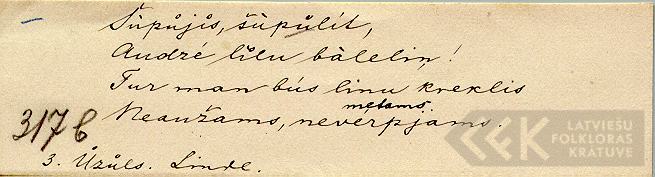 Šūpůjis, šūpůlīt,
Audrē lělu bālelin!
Tur man būs linu kreklis
metams
Neaužams, neverpjams.
317 b
3. Ůzůls. Linde.
LATVIEŠU
FOLKLORAS
KRĀTUVE